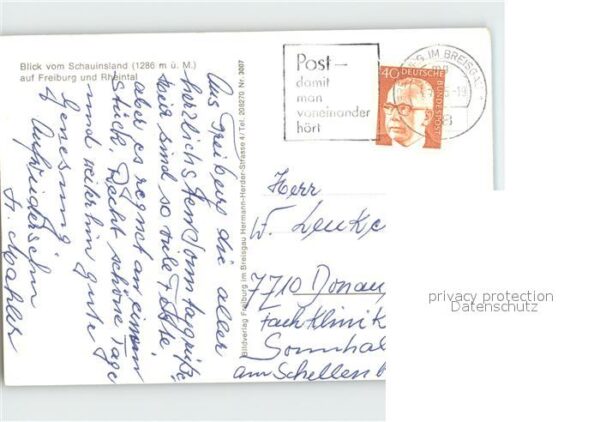 Blick vom Schauinsland (1286 m ü. M.)
auf Freiburg und Rheintal
Aus Freiburg die aller
herzlichsten Sonntagsgrüße
Wir sind so viele
aber es regnet an einem
Stück. Recht schöne Tage
und weiterhin gute
Genesung
Aufwiedersehn
Bildverlag Freiburg im Breisgau Hermann-Herder-Strasse 4/Tel. 208270 Nr. 3007
Post –
damit
man
voneinander
hört
G IM BREISGAU
40
DEUTSCHE
BUNDESPOST
Herr
W.
7710 Donau
Fachklinik
Sonnhal
am Schellen
privacy protection
Datenschutz